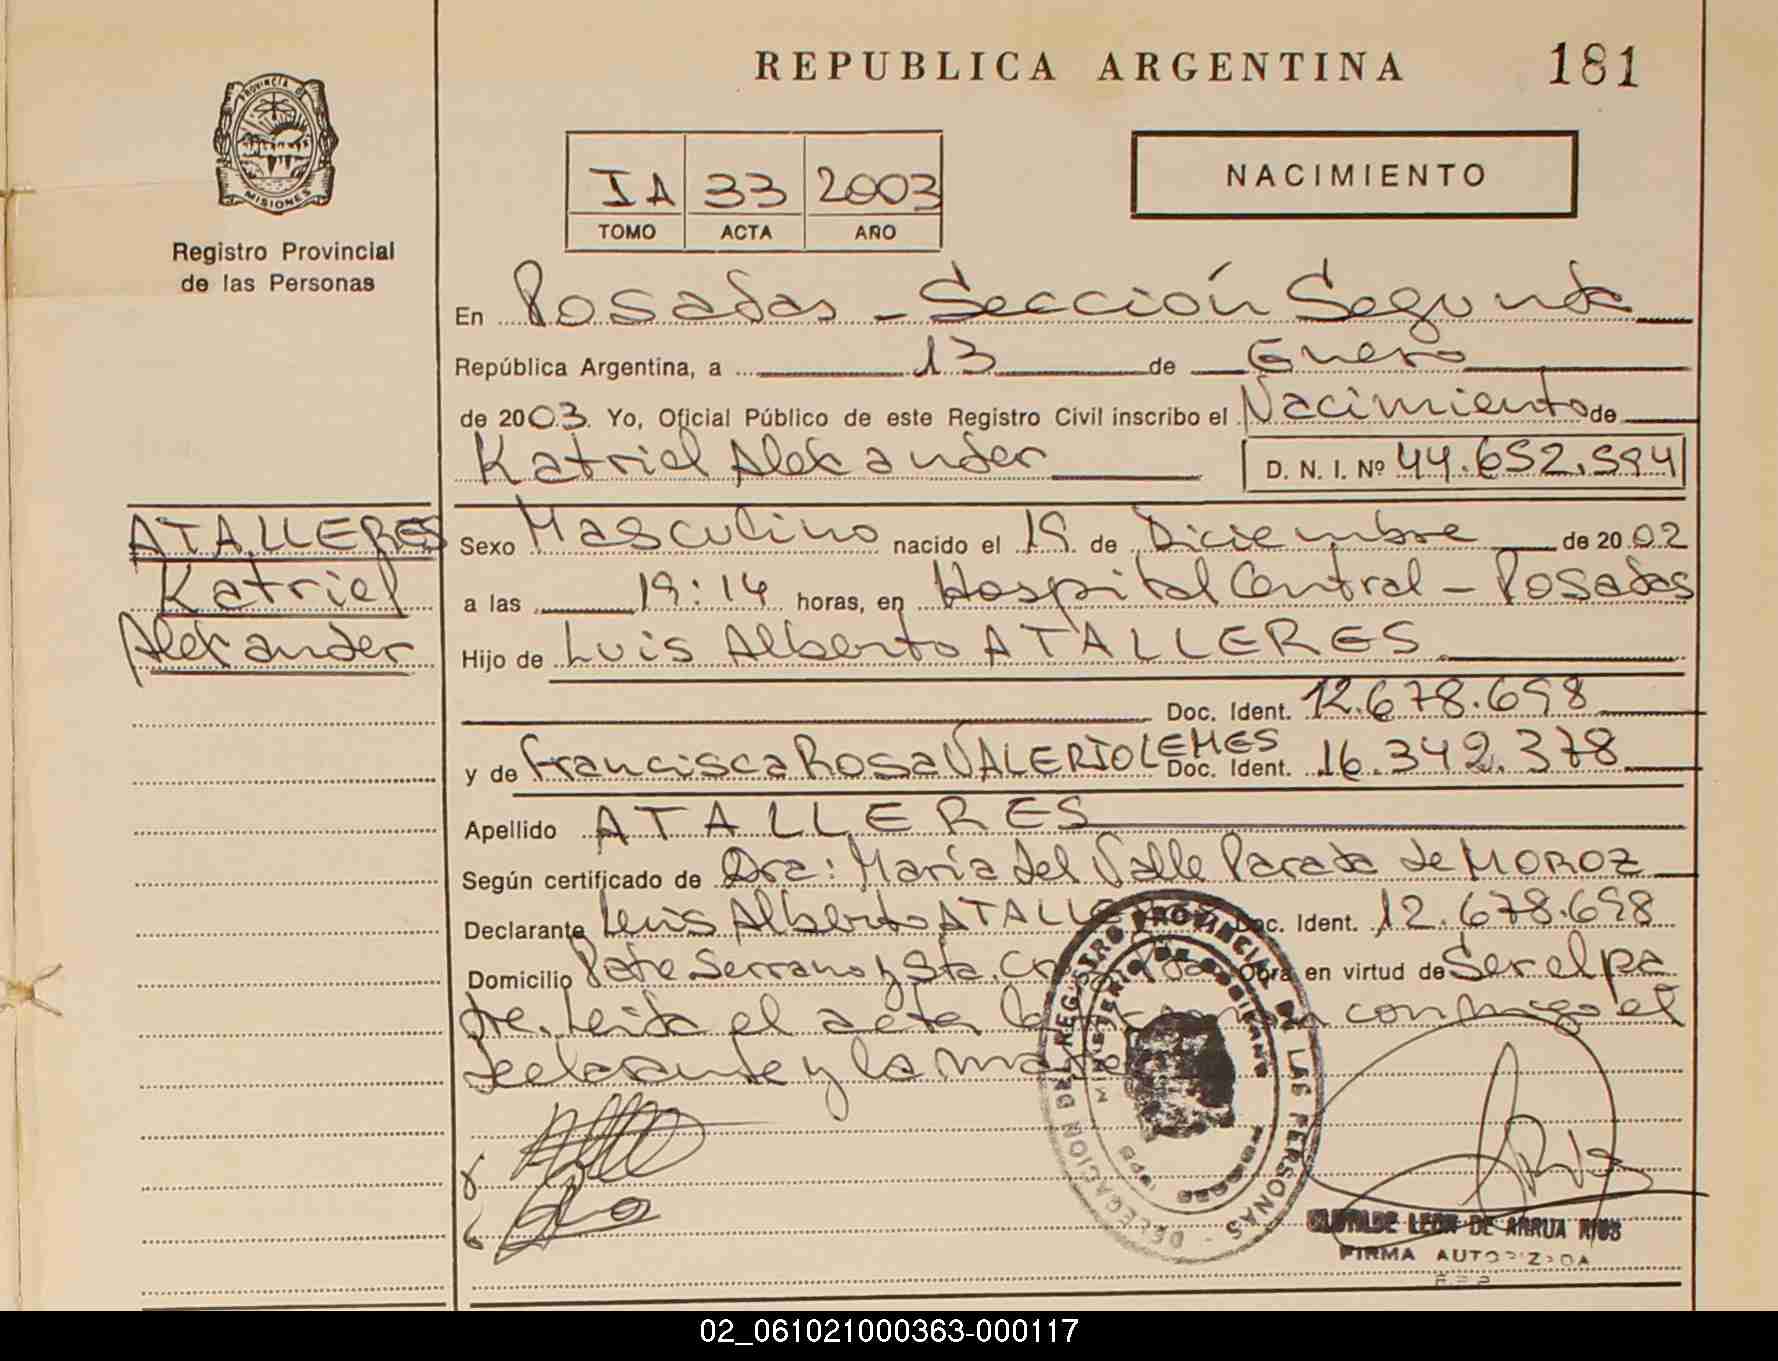 REPUBLICA ARGENTINA 181
PROVINCIA DE MISIONES
Registro Provincial
de las Personas
IA 33 2003
TOMO ACTA AÑO
NACIMIENTO
En Posadas - Sección Segunda
República Argentina, a 13 de Enero
de 2003. Yo, Oficial Público de este Registro Civil inscribo el Nacimiento de
Katriel Alexander D. N. I. Nº 44.652.594
ATALLERES
Katriel
Alexander
Sexo Masculino nacido el 19 de Diciembre de 2002
a las 19:14 horas, en Hospital Central - Posadas
Hijo de Luis Alberto ATALLERES.
Doc. Ident. 12.678.698
y de Francisca Rosa VALERIO LEMES Doc. Ident. 16.342.378
Apellido ATALLERES
Según certificado de Dra: María del Valle Parada de MOROZ
Declarante Luis Alberto ATALLE Doc. Ident. 12.678.698
Domicilio Pate Serrano y Sta. Cruz Pdas Obra en virtud de Ser el pa
dre. Leída el acta la firman conmigo el
declarante y la madre
REGISTRO PROVINCIAL DE LAS PERSONAS - DELEGACION
MINISTERIO DE GOBIERNO
CLOTILDE LEON DE ARRUA RIOS
FIRMA AUTORIZADA
02_061021000363-000117